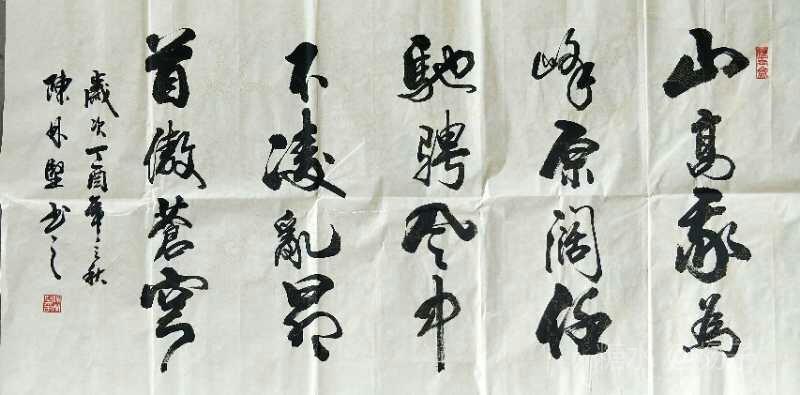 山高我為
峰原闊任
馳騁風中
不凌亂昂
首傲蒼穹
歲次丁酉年之秋
陳丹堅书之